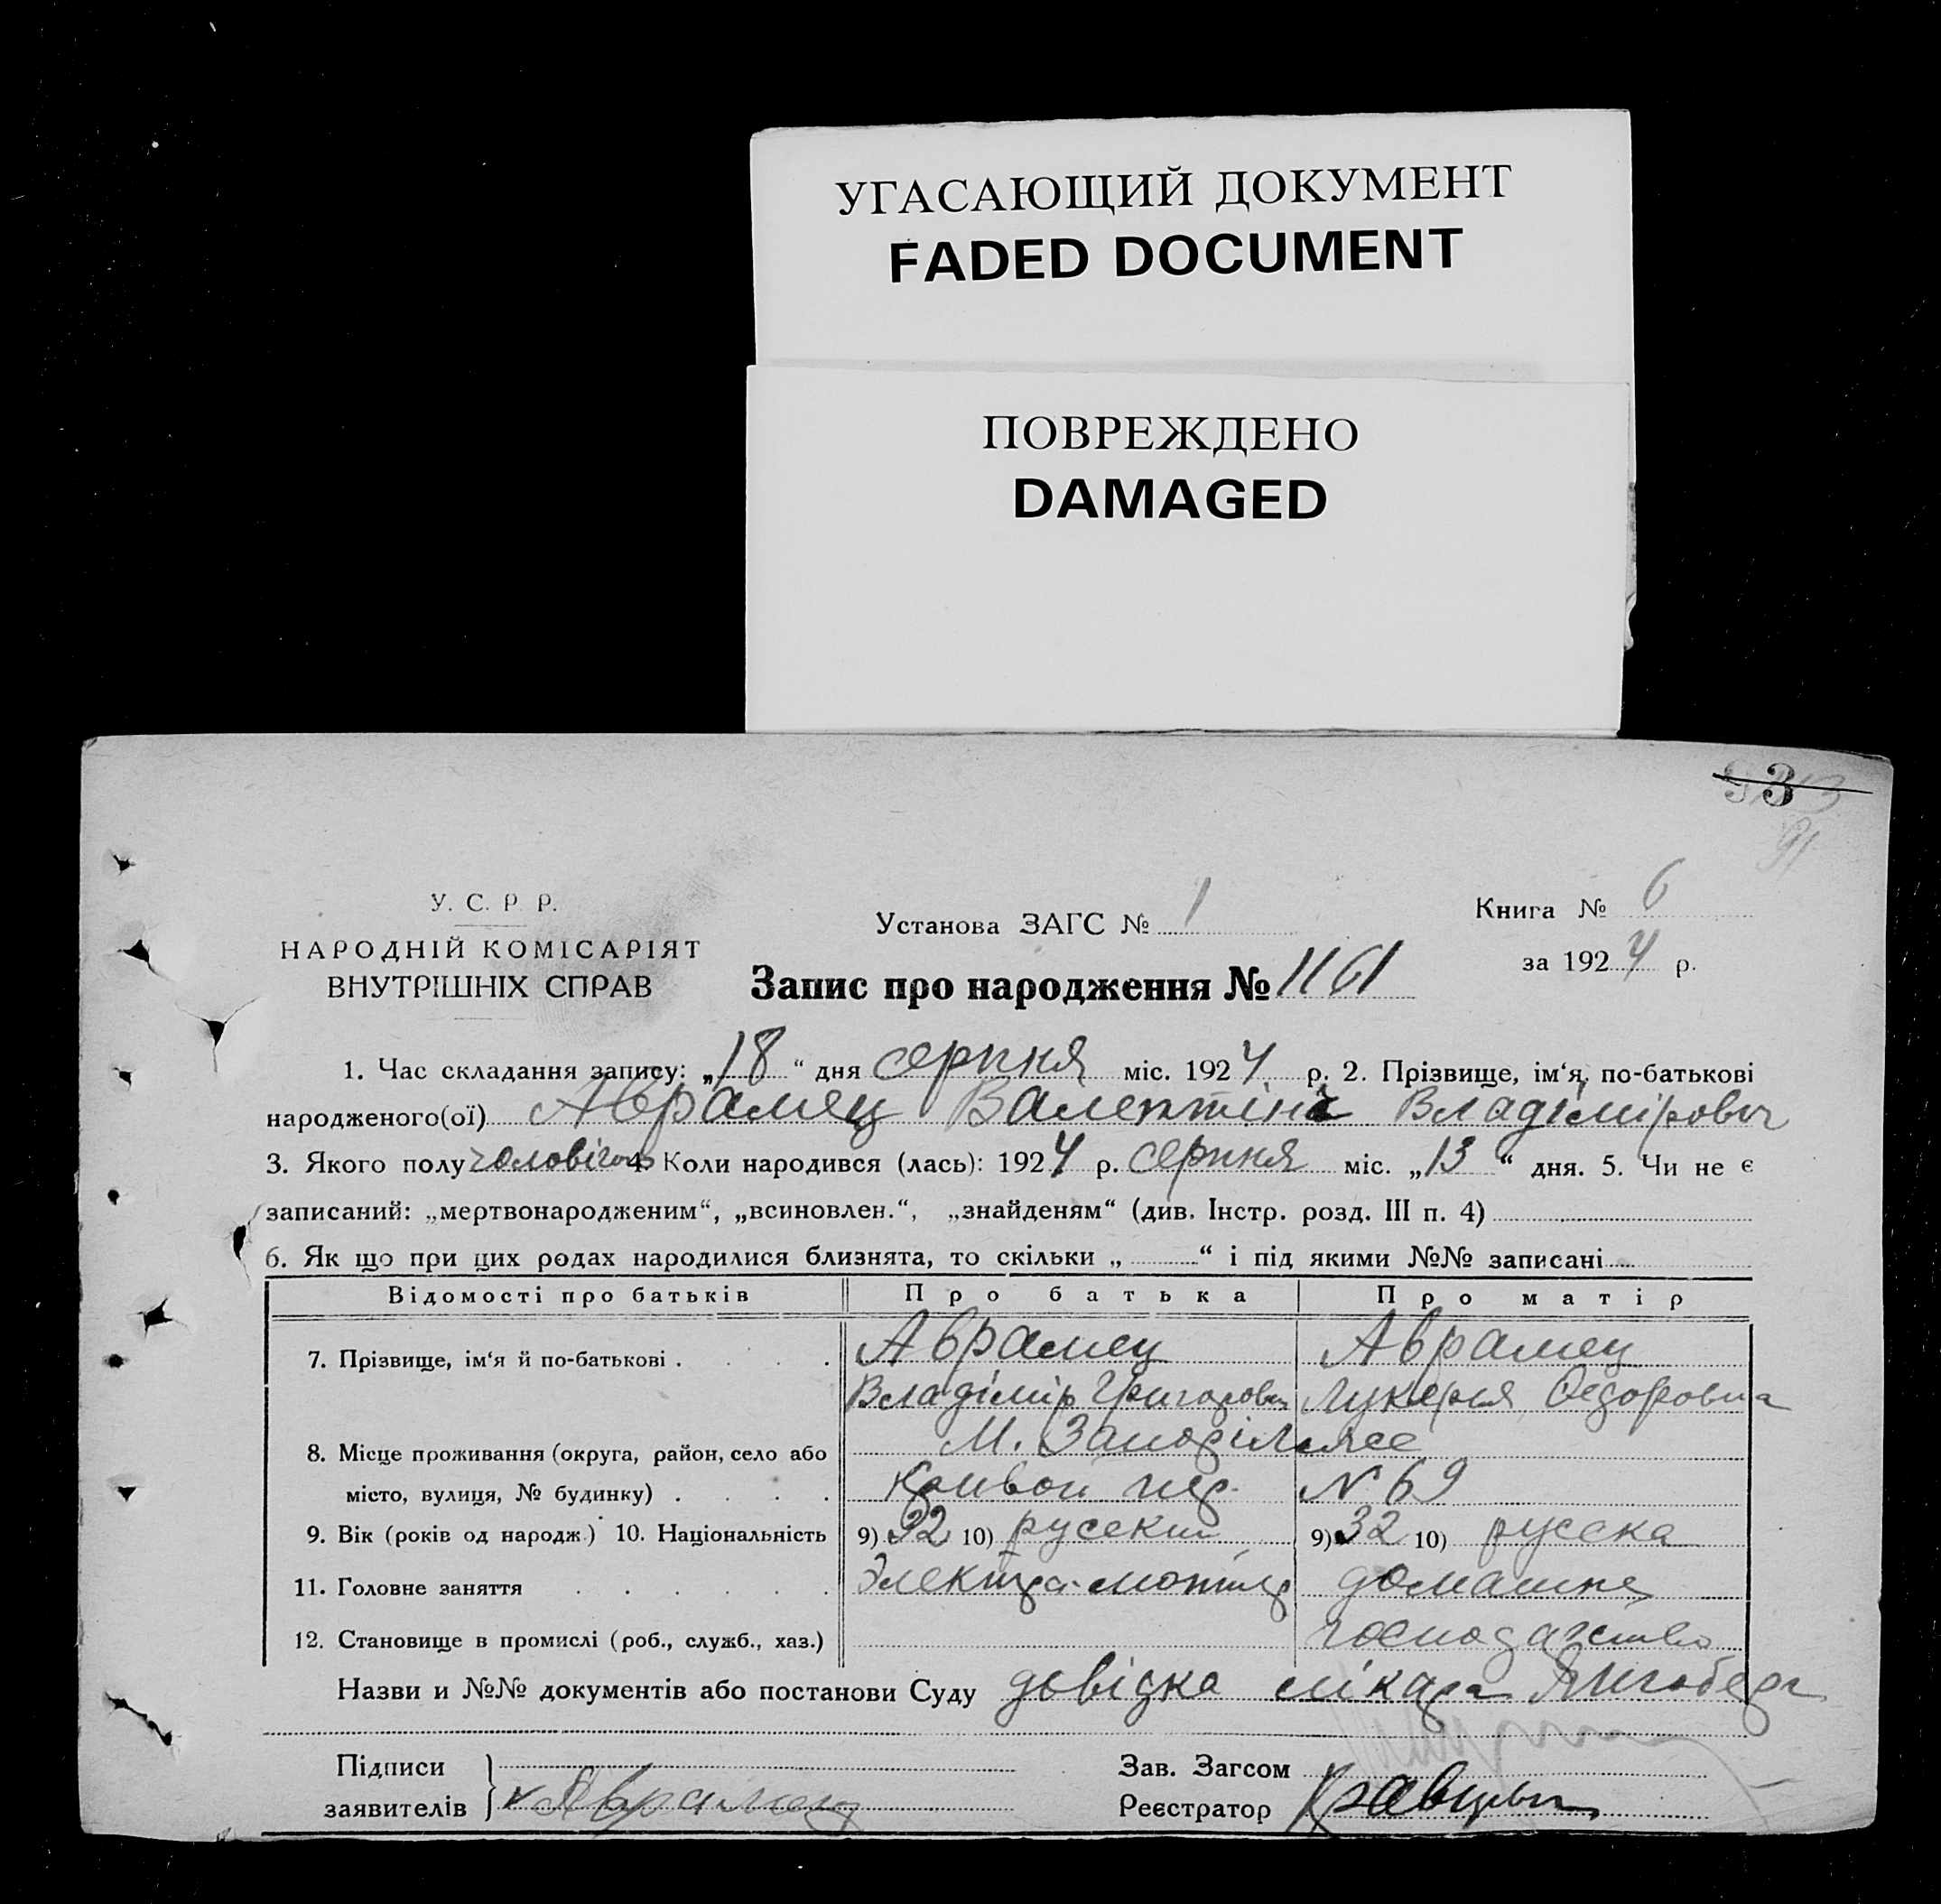 УГАСАЮЩИЙ ДОКУМЕНТ
FADED DOCUMENT
ПОВРЕЖДЕНО
DAMAGED
3
91
У. С. Р. Р.
НАРОДНІЙ КОМІСАРІЯТ
ВНУТРІШНІХ СПРАВ
Установа ЗАГС № 1
Книга № 6
за 1924 р.
Запис про народження № 1161
1. Час складання запису: „18“ дня серпня міс. 1924 р. 2. Прізвище, ім‘я, по-батькові
народженого(ої) Аврамец Валентін Владімірович
3. Якого полу чоловічого 4. Коли народився (лась): 1924 р. серпня міс. „13“ дня. 5. Чи не є
записаний: „мертвонародженим“, „всиновлен.“, „знайденям“ (див. Інстр. розд. III п. 4)
6. Як що при цих родах народилися близнята, то скільки „ “ і під якими №№ записані
Відомості про батьків Про батька Про матір
7. Прізвище, ім‘я й по-батькові Аврамец Аврамец
Владімір Григорович Лукерья Федоровна
8. Місце проживання (округа, район, село або М.
місто, вулиця, № будинку) Кривой пер. N 69
9. Вік (років од народж.) 10. Національність 9) 32 10) русский 9) 32 10) русска
11. Головне заняття домашнє
12. Становище в промислі (роб., служб., хаз.) господарство
Назви и №№ документів або постанови Суду довідка лікара
Підписи
заявителів Аврамец
Зав. Загсом
Реєстратор